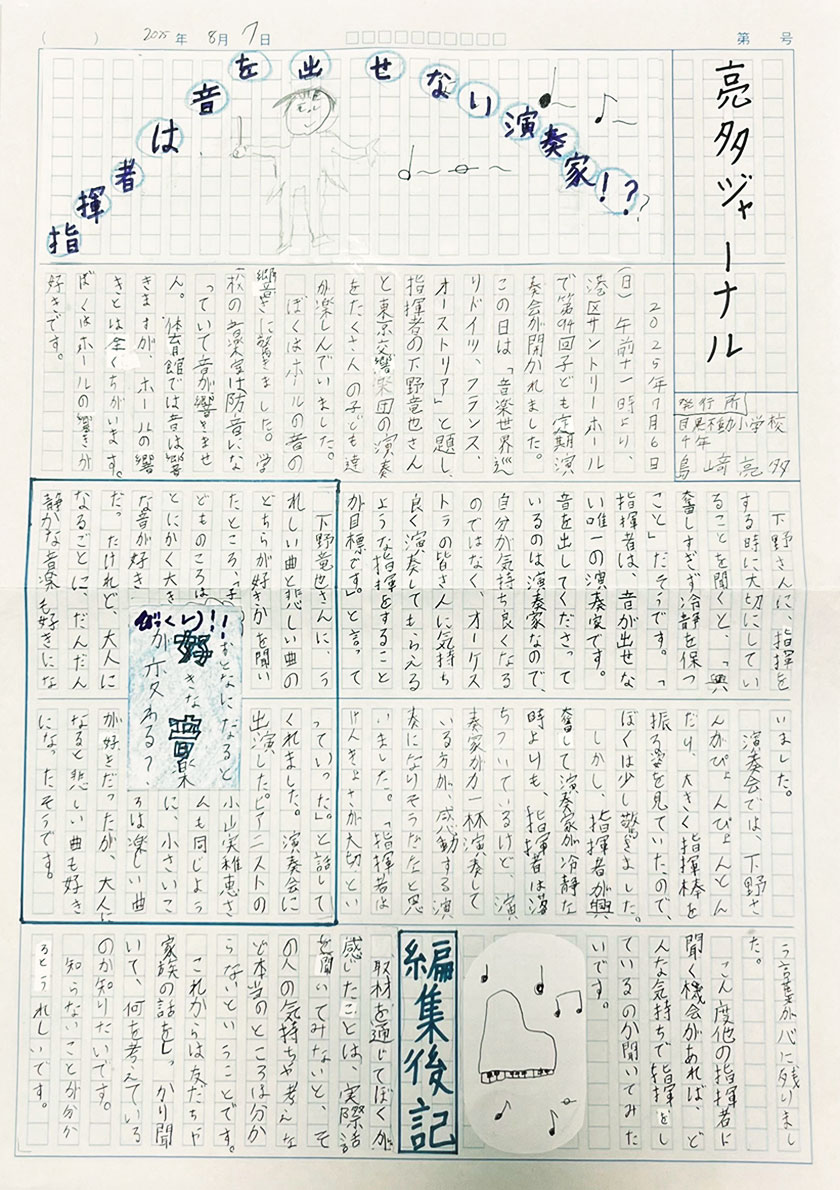 2025年 8月 7日
第 号
亮多ジャーナル
指揮者は音を出せない演奏家!??
発行所
目黒不動小学校
4年
島崎亮多
2025年7月6日
(日)午前十一時より、
港区サントリーホール
で第94回子ども定期演
奏会が開かれました。
この日は「音楽世界巡
りドイツ、フランス、
オーストリア」と題し、
指揮者の下野竜也さん
と東京交響楽団の演奏
をたくさんの子ども達
が楽しんでいました。
ぼくはホールの音の
響きに驚きました。学
校の音楽室は防音にな
っていて音が響きませ
ん。体育館では音は響
きますが、ホールの響
きとは全くちがいます。
ぼくはホールの響きが
好きです。
下野さんに、指揮を
する時に大切にしてい
ることを聞くと、「興
奮しすぎず冷静を保つ
こと」だそうです。「
指揮者は、音が出せな
い唯一の演奏家です。
音を出してくださって
いるのは演奏家なので、
自分が気持ち良くなる
のではなく、オーケス
トラの皆さんに気持ち
良く演奏してもらえる
ような指揮をすること
が目標です。」と言って
いました。
演奏会では、下野さ
んがぴょんぴょんとん
だり、大きく指揮棒を
振る姿を見ていたので、
ぼくは少し驚きました。
しかし、指揮者が興
奮して演奏家が冷静な
時よりも、指揮者は落
ちついているけど、演
奏家が力一杯演奏して
いる方が、感動する演
奏になりそうだなと思
いました。「指揮者は
けんきょさが大切」とい
う言葉が心に残りまし
た。
こん度他の指揮者に
聞く機会があれば、ど
んな気持ちで指揮をし
ているのか聞いてみた
いです。
びっくり!!
おとなになると
好きな音楽
が変わる?
下野竜也さんに、う
れしい曲と悲しい曲の
どちらが好きかを聞い
たところ、「子
どものころは
とにかく大き
な音が好き
だったけれど、大人に
なるごとに、だんだん
静かな音楽も好きにな
っていった。」と話して
くれました。演奏会に
出演したピアニストの
小山実稚恵さ
んも同じよう
に、小さいこ
ろは楽しい曲
が好きだったが、大人に
なると悲しい曲も好き
になったそうです。
編集後記
取材を通じてぼくが
感じたことは、実際話
を聞いてみないと、そ
の人の気持ちや考えな
ど本当のところは分か
らないということです。
これからは友だちや
家族の話をしっかり聞
いて、何を考えている
のか知りたいです。
知らないことが分か
るとうれしいです。